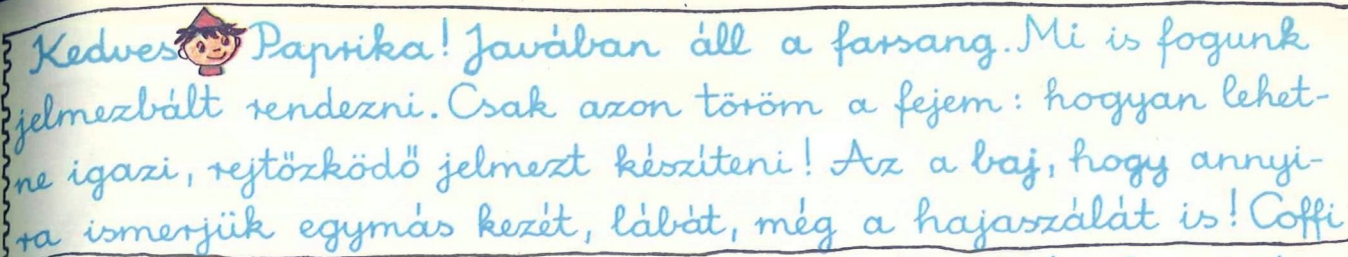 Kedves Paprika! Javában áll a farsang. Mi is fogunk
jelmezbált rendezni. Csak azon töröm a fejem: hogyan lehet-
ne igazi, rejtőzködő jelmezt készíteni! Az a baj, hogy annyi-
ra ismerjük egymás kezét, lábát, még a hajaszálát is! Coffi